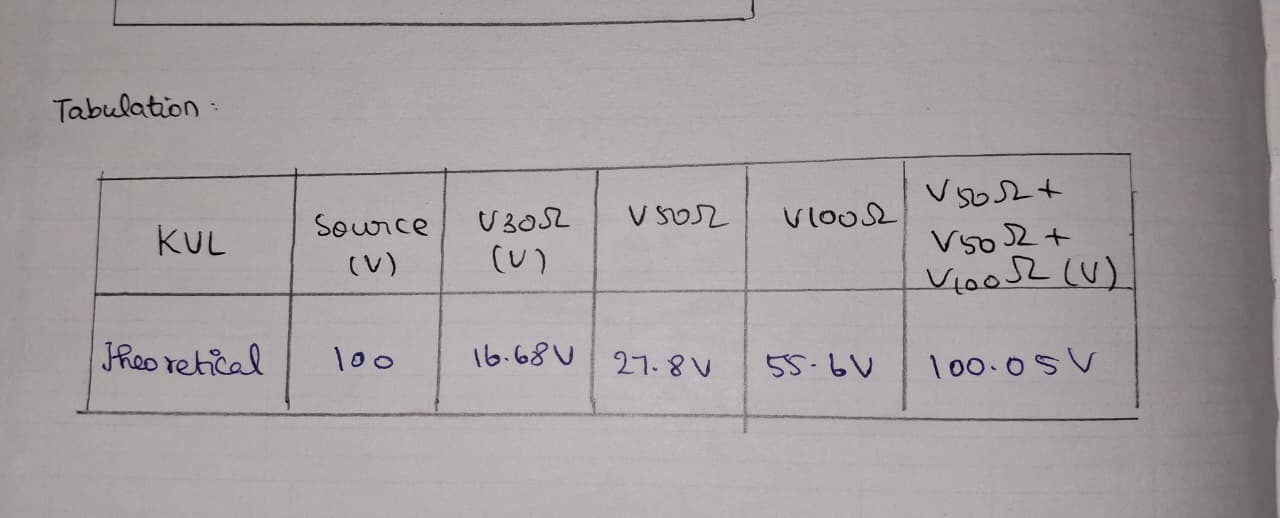 Tabulation :
KVL
Source
(V)
V30Ω
(V)
V50Ω
V100Ω
V50Ω+
V50Ω+
V100Ω (V)
Theoretical
100
16.68V
27.8V
55.6V
100.05V